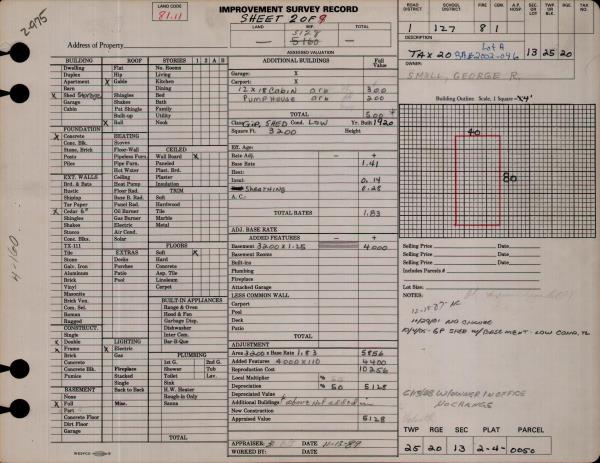 2-975
LAND CODE
81.11
IMPROVEMENT SURVEY RECORD
SHEET 2 OF 8
LAND IMP. TOTAL
5128
5160
ASSESSED VALUATION
Address of Property
ROAD DISTRICT SCHOOL DISTRICT FIRE CEM. A.P. HOSP. SEC. OR LOT TWP. OR BLK. RGE. TAX NO.
1 127 8 1
DESCRIPTION
TAX 20 Lot A BA#2002-046 13 25 20
OWNER
SMALL, GEORGE R.
Building Outline: Scale, 1 Square = 4'
40
80
BUILDING ROOF STORIES 1 2 A B
Dwelling Flat No. Rooms
Duplex Hip Living
Apartment X Gable Kitchen
Barn Dining
X Shed Storage Shingles Bed
Garage Shakes Bath
Cabin Pat Shingle Family
Built-up Utility
X Roll Nook
FOUNDATION
X Concrete HEATING
Conc. Blk. Stoves
Stone, Brick Floor-Wall CEILED
Posts Pipeless Furn. Wall Board X
Piles Pipe Furn. Paneled
Hot Water Plast. Brd.
EXT. WALLS Ceiling Plaster
Brd. & Bats Heat Pump Insulation
Rustic Floor Rad. TRIM
Shiplap Base B. Rad. Soft X
Tar Paper Panel Rad. Hardwood
X Cedar 6" Oil Burner Tile
Shingles Gas Burner Marble
Shakes Electric Metal
Stucco Air Cond.
Conc. Blks. Solar
TX-111 FLOORS
Tile EXTRAS Soft X
Stone Decks Hard
Galv. Iron Porches Concrete
Aluminum Patio Asp. Tile
Brick Pool Linoleum
Vinyl Carpet
Masonite
Brick Ven. BUILT-IN APPLIANCES
Com. Sel. Range & Oven
Roman Hood & Fan
Ragged Garbage Disp.
CONSTRUCT. Dishwasher
Single Inter Com.
X Double LIGHTING Bar-B-Que
X Frame X Electric
Brick Gas PLUMBING
Concrete 1st G. 2nd G.
Concrete Fireplace Shower Tub
Pumice Stacked Toilet Lav.
Single Sink
BASEMENT Back to Back H.W. Heater
None Rough-in Only
X Full Misc. Sauna
Part
Concrete Floor
Dirt Floor
Garage TOTAL
ADDITIONAL BUILDINGS Full Value
Garage: X
Carport: X
12 X 18 CABIN 300
PUMP HOUSE 200
TOTAL 500
Class GP, SHED Cond. LOW Yr. Built 1920
Square Ft. 3200 Height
Eff. Age:
Rate Adj. — +
Base Rate 1.41
Heat:
Insul. 0.14
SHEATHING 0.28
A.C.
TOTAL RATES 1.83
ADJ. BASE RATE
ADDED FEATURES — +
Basement 3200 X 1.25 4000
Basement Rooms
Built-ins
Plumbing
Fireplace
Attached Garage
LESS COMMON WALL
Carport
Pool
Deck
Patio
TOTAL
ADJUSTMENT
Area 3200 x Base Rate 1.83 5856
Added Features 4000 X 110 4400
Reproduction Cost 10256
Local Multiplier
Depreciation % 50 5128
Depreciated Value
Additional Buildings above not added in
New Construction
Appraised Value 5128
APPRAISER: DATE 11-13-89
WORKED BY: DATE
Selling Price Date
Selling Price Date
Selling Price Date
Includes Parcels #
Lot Size:
NOTES:
NO CHANGE
GP SHED W/BASEMENT - LOW COND.
W/OWNER IN OFFICE
NO CHANGE
TWP RGE SEC PLAT PARCEL
25 20 13 2-4- 0050
4-160